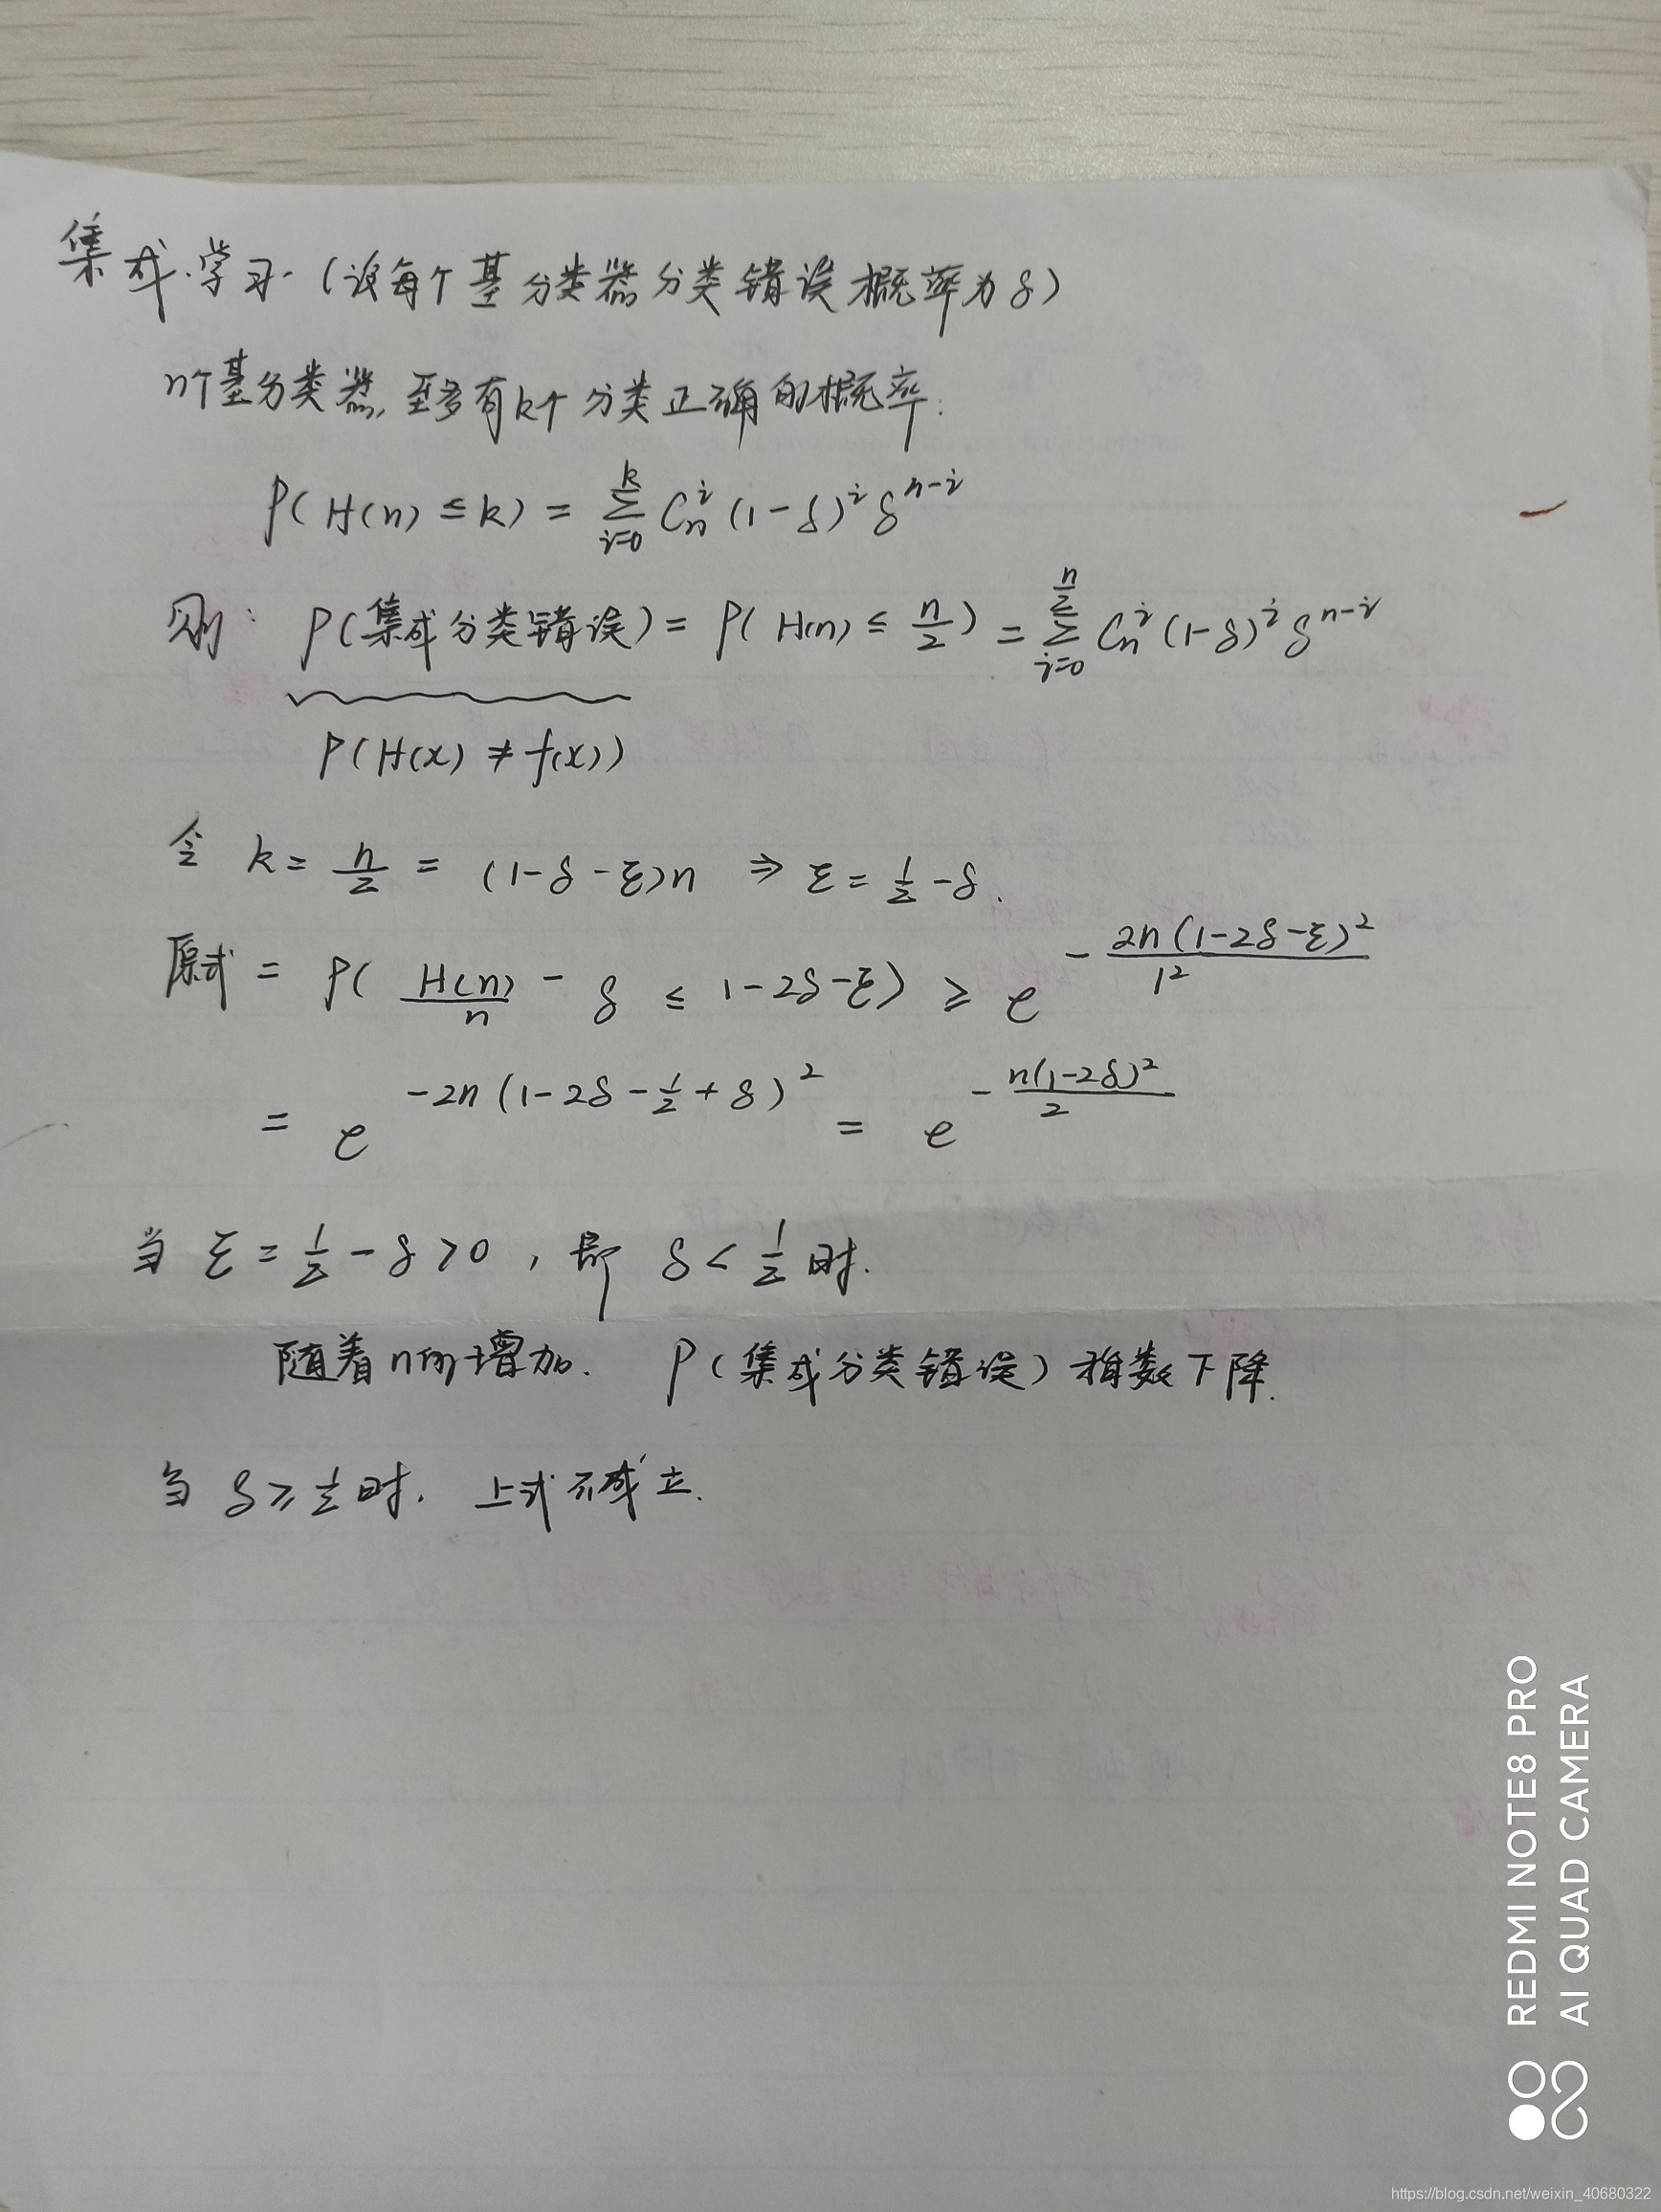 集成学习(设每个基分类器分类错误概率为δ)
n个基分类器,至多有k个分类正确的概率:
P(H(n) ≤ k) = ∑_{i=0}^{k} C_n^i (1-δ)^i δ^{n-i}
则: P(集成分类错误) = P(H(n) ≤ n/2) = ∑_{i=0}^{n/2} C_n^i (1-δ)^i δ^{n-i}
P(H(x) ≠ f(x))
令 k = n/2 = (1-δ-ξ)n ⇒ ξ = 1/2 - δ.
原式 = P( H(n)/n - δ ≤ 1-2δ-ξ) ≥ e^{- 2n(1-2δ-ξ)^2 / 1^2}
= e^{-2n(1-2δ-1/2+δ)^2} = e^{- n(1-2δ)^2 / 2}
当 ξ = 1/2 - δ > 0 , 即 δ < 1/2 时.
随着n的增加. P(集成分类错误)指数下降.
当 δ ≥ 1/2 时. 上式不成立.
REDMI NOTE8 PRO
AI QUAD CAMERA
https://blog.csdn.net/weixin_40680322